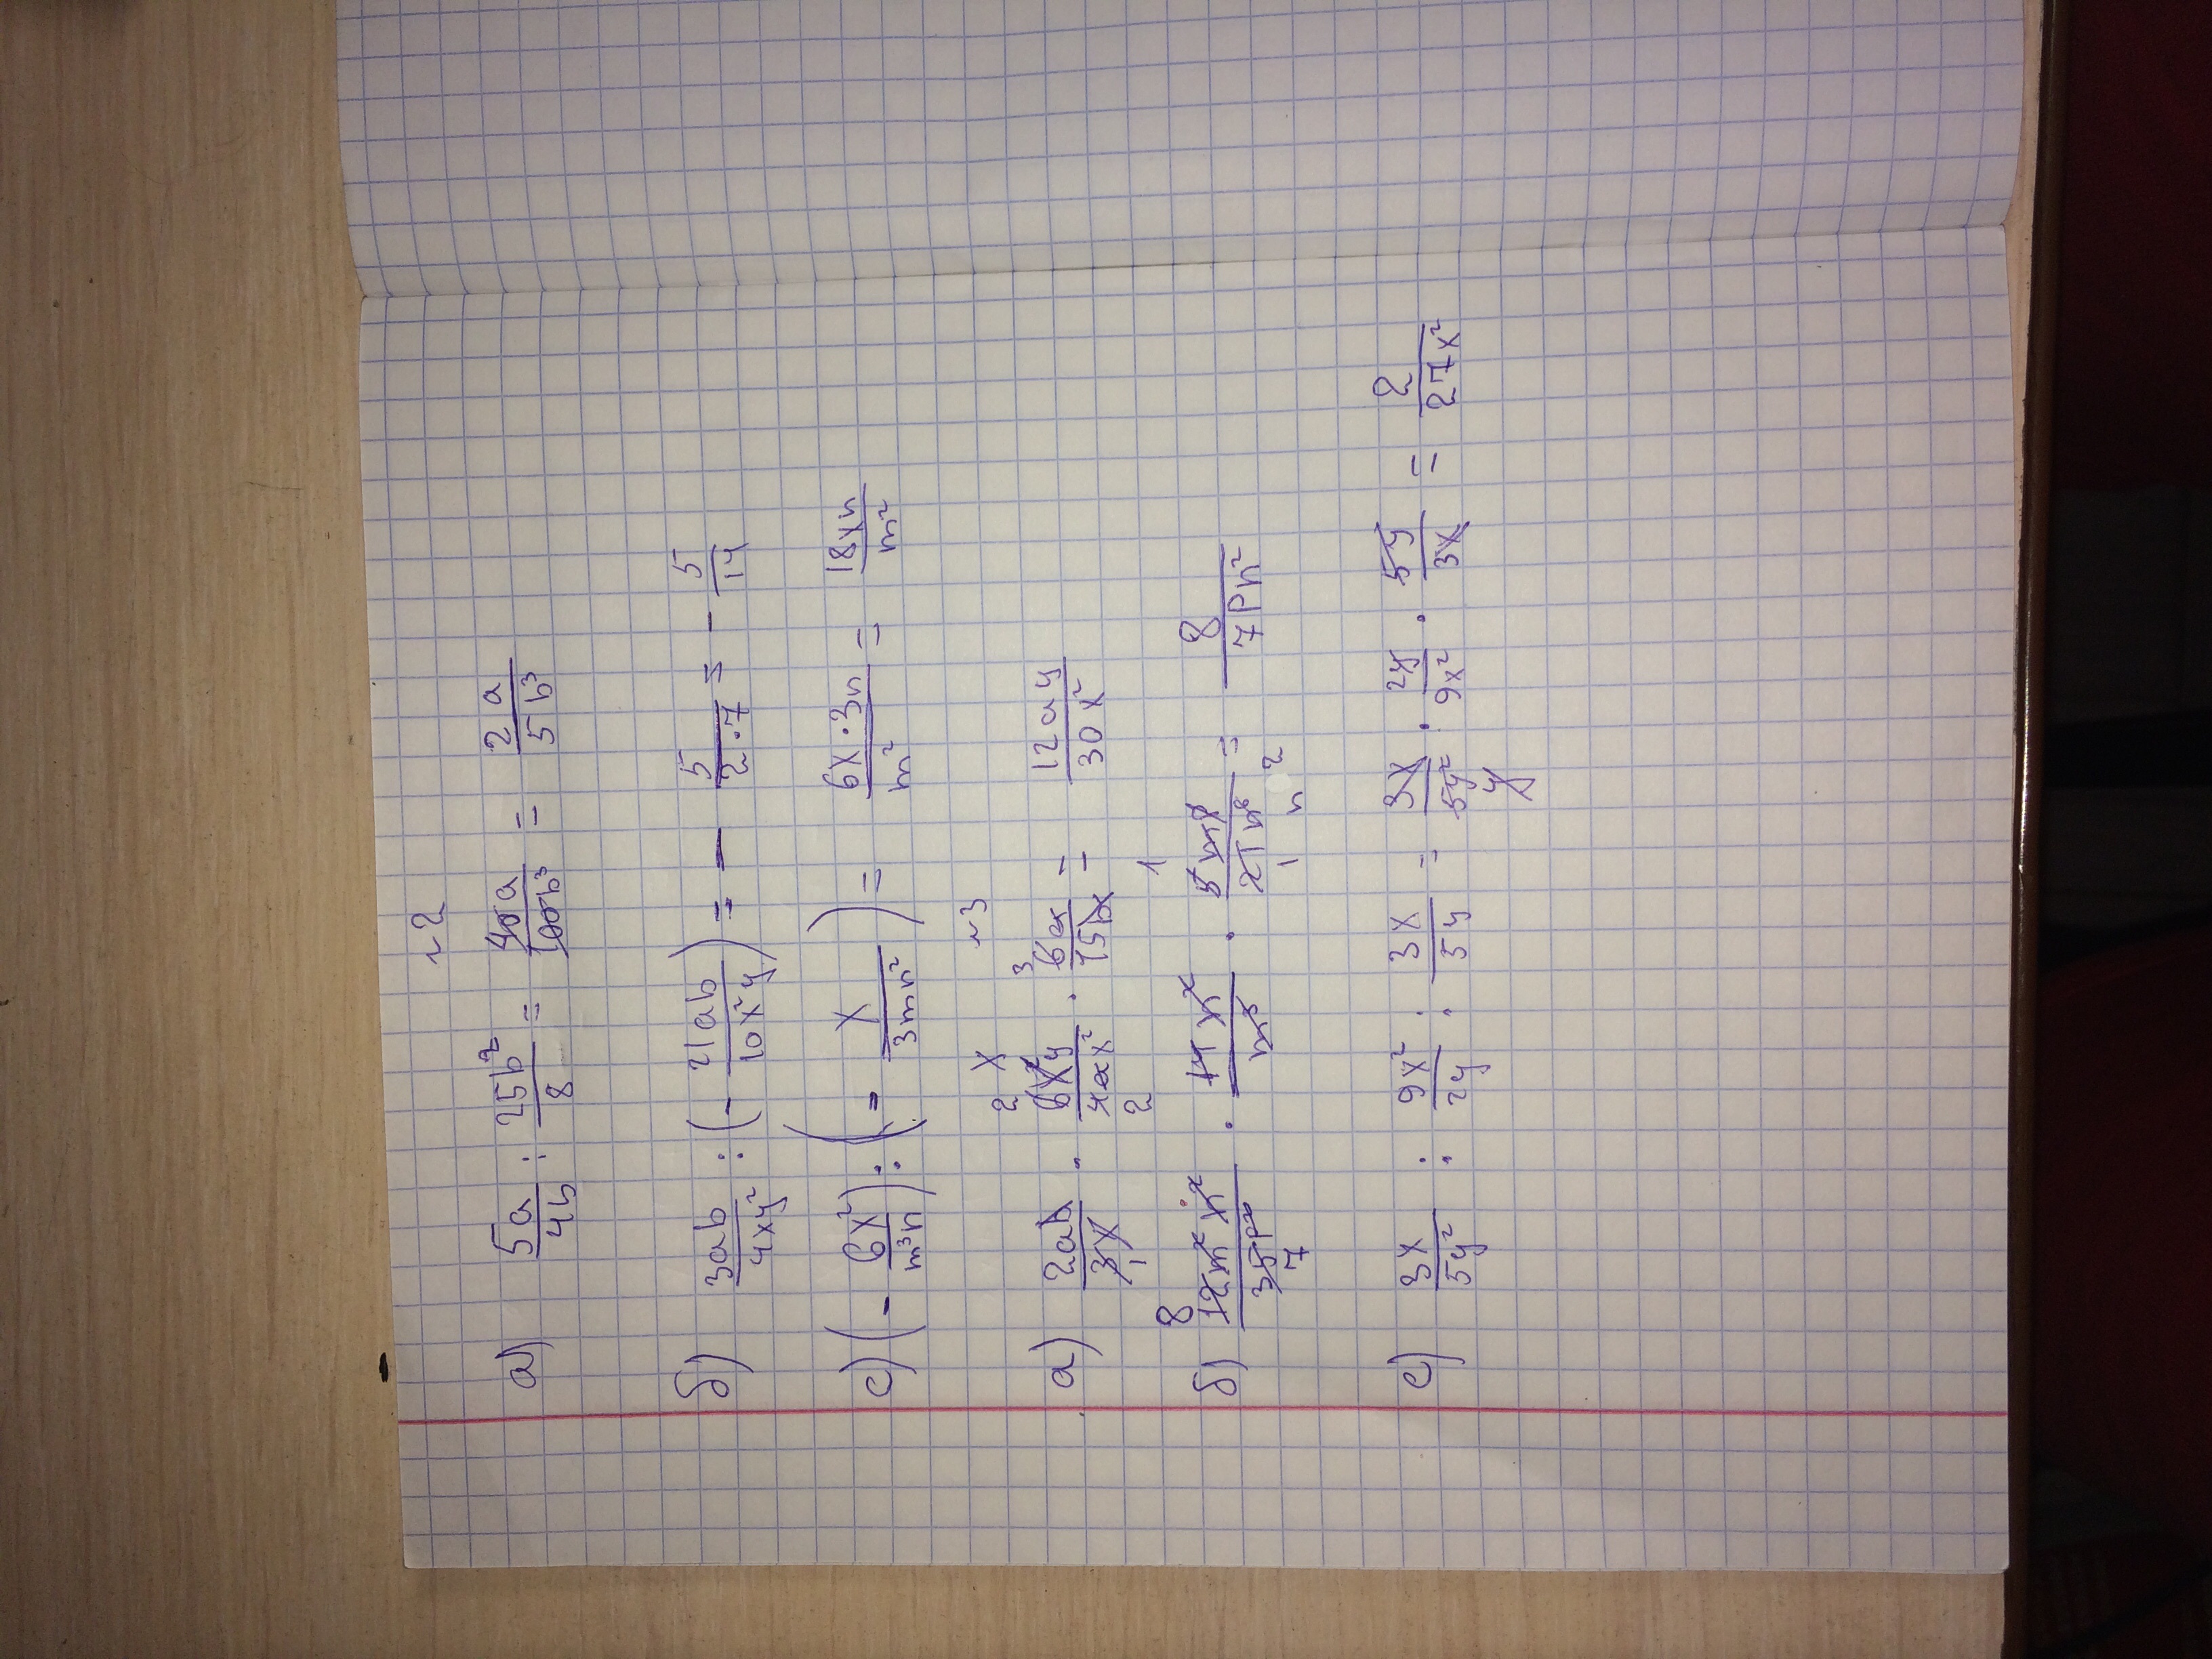 ~2
а) 5a/4b : 25b²/8 = 40a/100b³ = 2a/5b³
б) 3ab/4xy² : (- 21ab/10x²y) = - 5/2·7 = - 5/14
c) (- 6x²/m³n) : (- x/3mn²) = 6x·3n/m² = 18xn/m²
~3
а) 2ab/3x · 6x²y/4ax² · 6a/15b = 12ay/30x²
б) 12m²n²/35p · 14n²/m³ · 5mp/21n³ = 8/7Pn²
c) 3x/5y² : 9x²/2y : 3x/5y = 3x/5y² · 2y/9x² · 5y/3x = 2/27x²